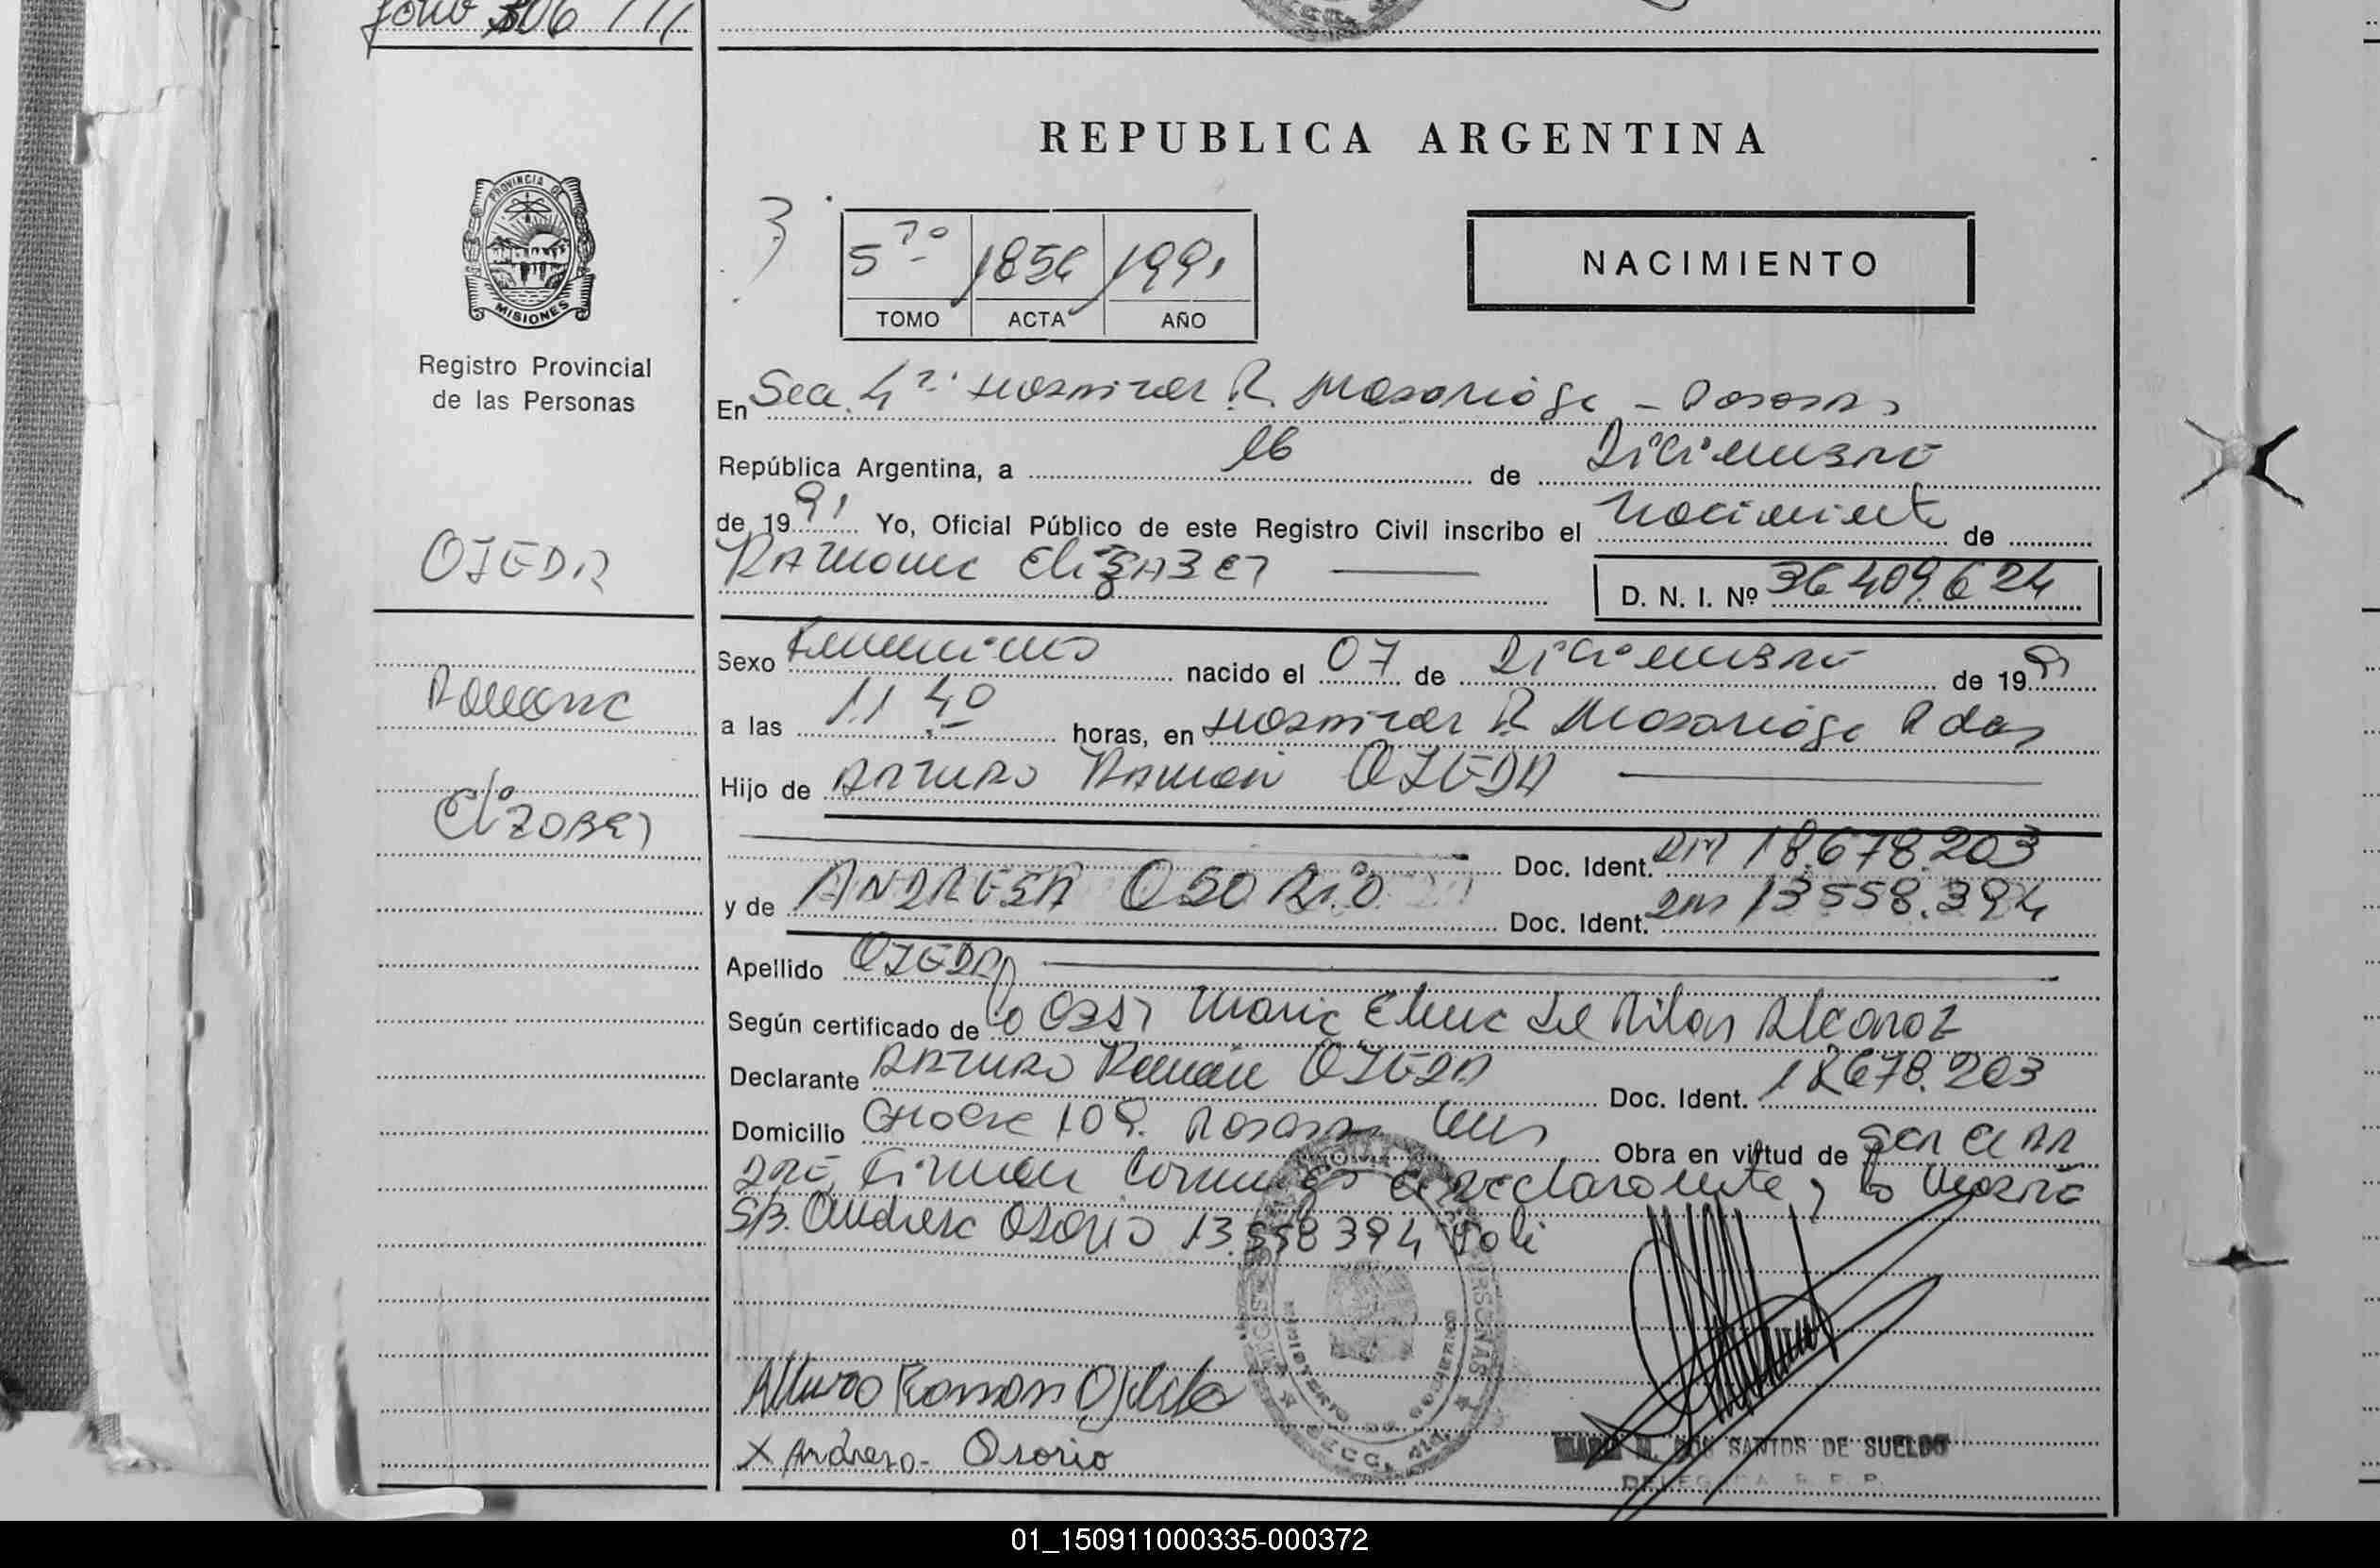 folio 306
REPUBLICA ARGENTINA
PROVINCIA DE
MISIONES
Registro Provincial
de las Personas
5to 1856 1991
TOMO ACTA AÑO
NACIMIENTO
En Sec. 4ª Hospital R. Madariaga - Posadas
República Argentina, a 16 de Diciembre
de 1991 Yo, Oficial Público de este Registro Civil inscribo el Nacimiento de
OJEDA
Ramona Elizabet
D. N. I. Nº 36.409.624
Sexo Femenino nacido el 07 de Diciembre de 1991
Ramona
a las 11 40 horas, en Hospital R. Madariaga Pdas
Hijo de Arturo Ramón OJEDA
Elizabet
Doc. Ident. DNI 18.678.203
y de ANDRESA OSORIO Doc. Ident. DNI 13.558.394
Apellido OJEDA
Según certificado de la Obst Maria Elena del Pilar Alcaraz
Declarante Arturo Ramón OJEDA Doc. Ident. 18.678.203
Domicilio 109. Posadas Obra en virtud de ser el Pa
dre, Firman conmigo el declarante y la madre
S/B. Andresa Osorio 13.558.394
Arturo Ramon Ojeda
X Andresa - Osorio
MINISTERIO DE GOBIERNO
M. DOS SANTOS DE SUELDO
DELEGADA R. P. P.
01_150911000335-000372